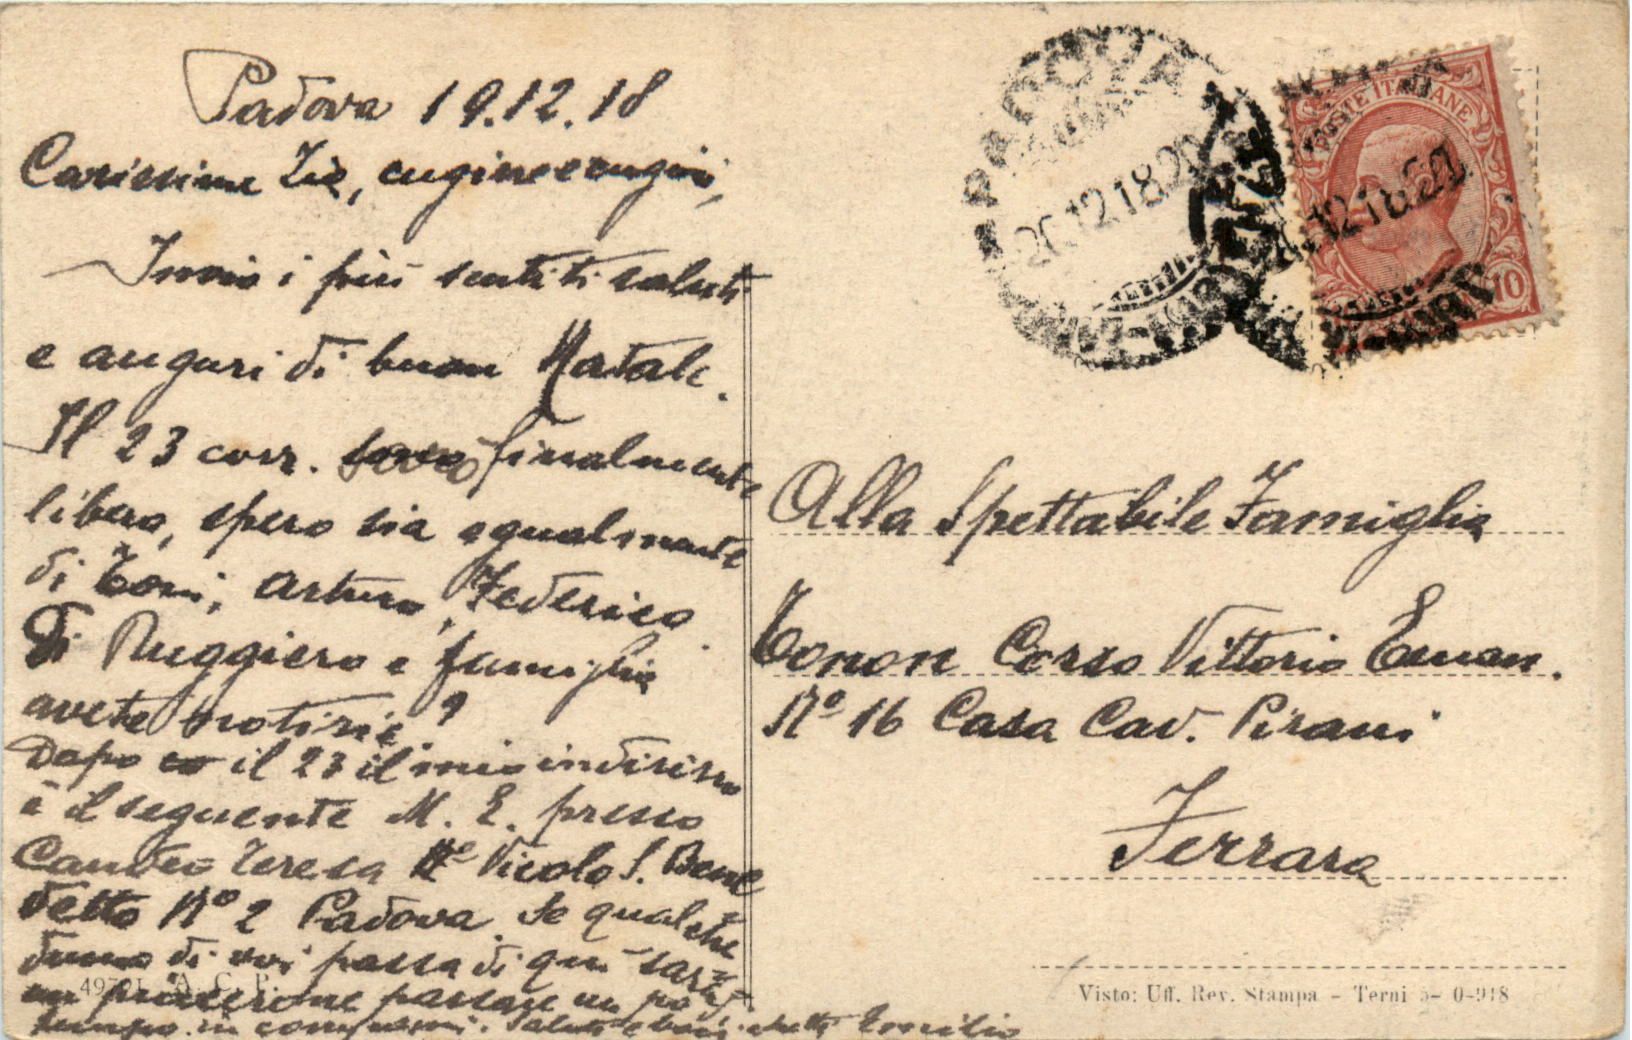 Padova 19.12.18
Carissime Zie, cugine e cugini,
Invio i più sentiti saluti
e auguri di buon Natale.
Il 23 corr. sarò finalmente
libero, spero sia egualmente
di Toni, Arturo, Federico.
Di Ruggiero e famiglia
avete notizie?
Dopo il 23 il mio indirizzo
è il seguente M. E. presso
Teresa Vicolo S. Bene
detto Nº 2 Padova. Se qualche
duno di voi passa di qui
un passare un po'
tempo in Saluti e baci Emilio
49721 A. C. P.
PADOVA
20.12.18.20
POSTE ITALIANE
10
12.18.20
Alla Spettabile Famiglia
Tonon Corso Vittorio Eman.
Nº 16 Casa Cav. Pirani
Ferrara
Visto: Uff. Rev. Stampa - Terni